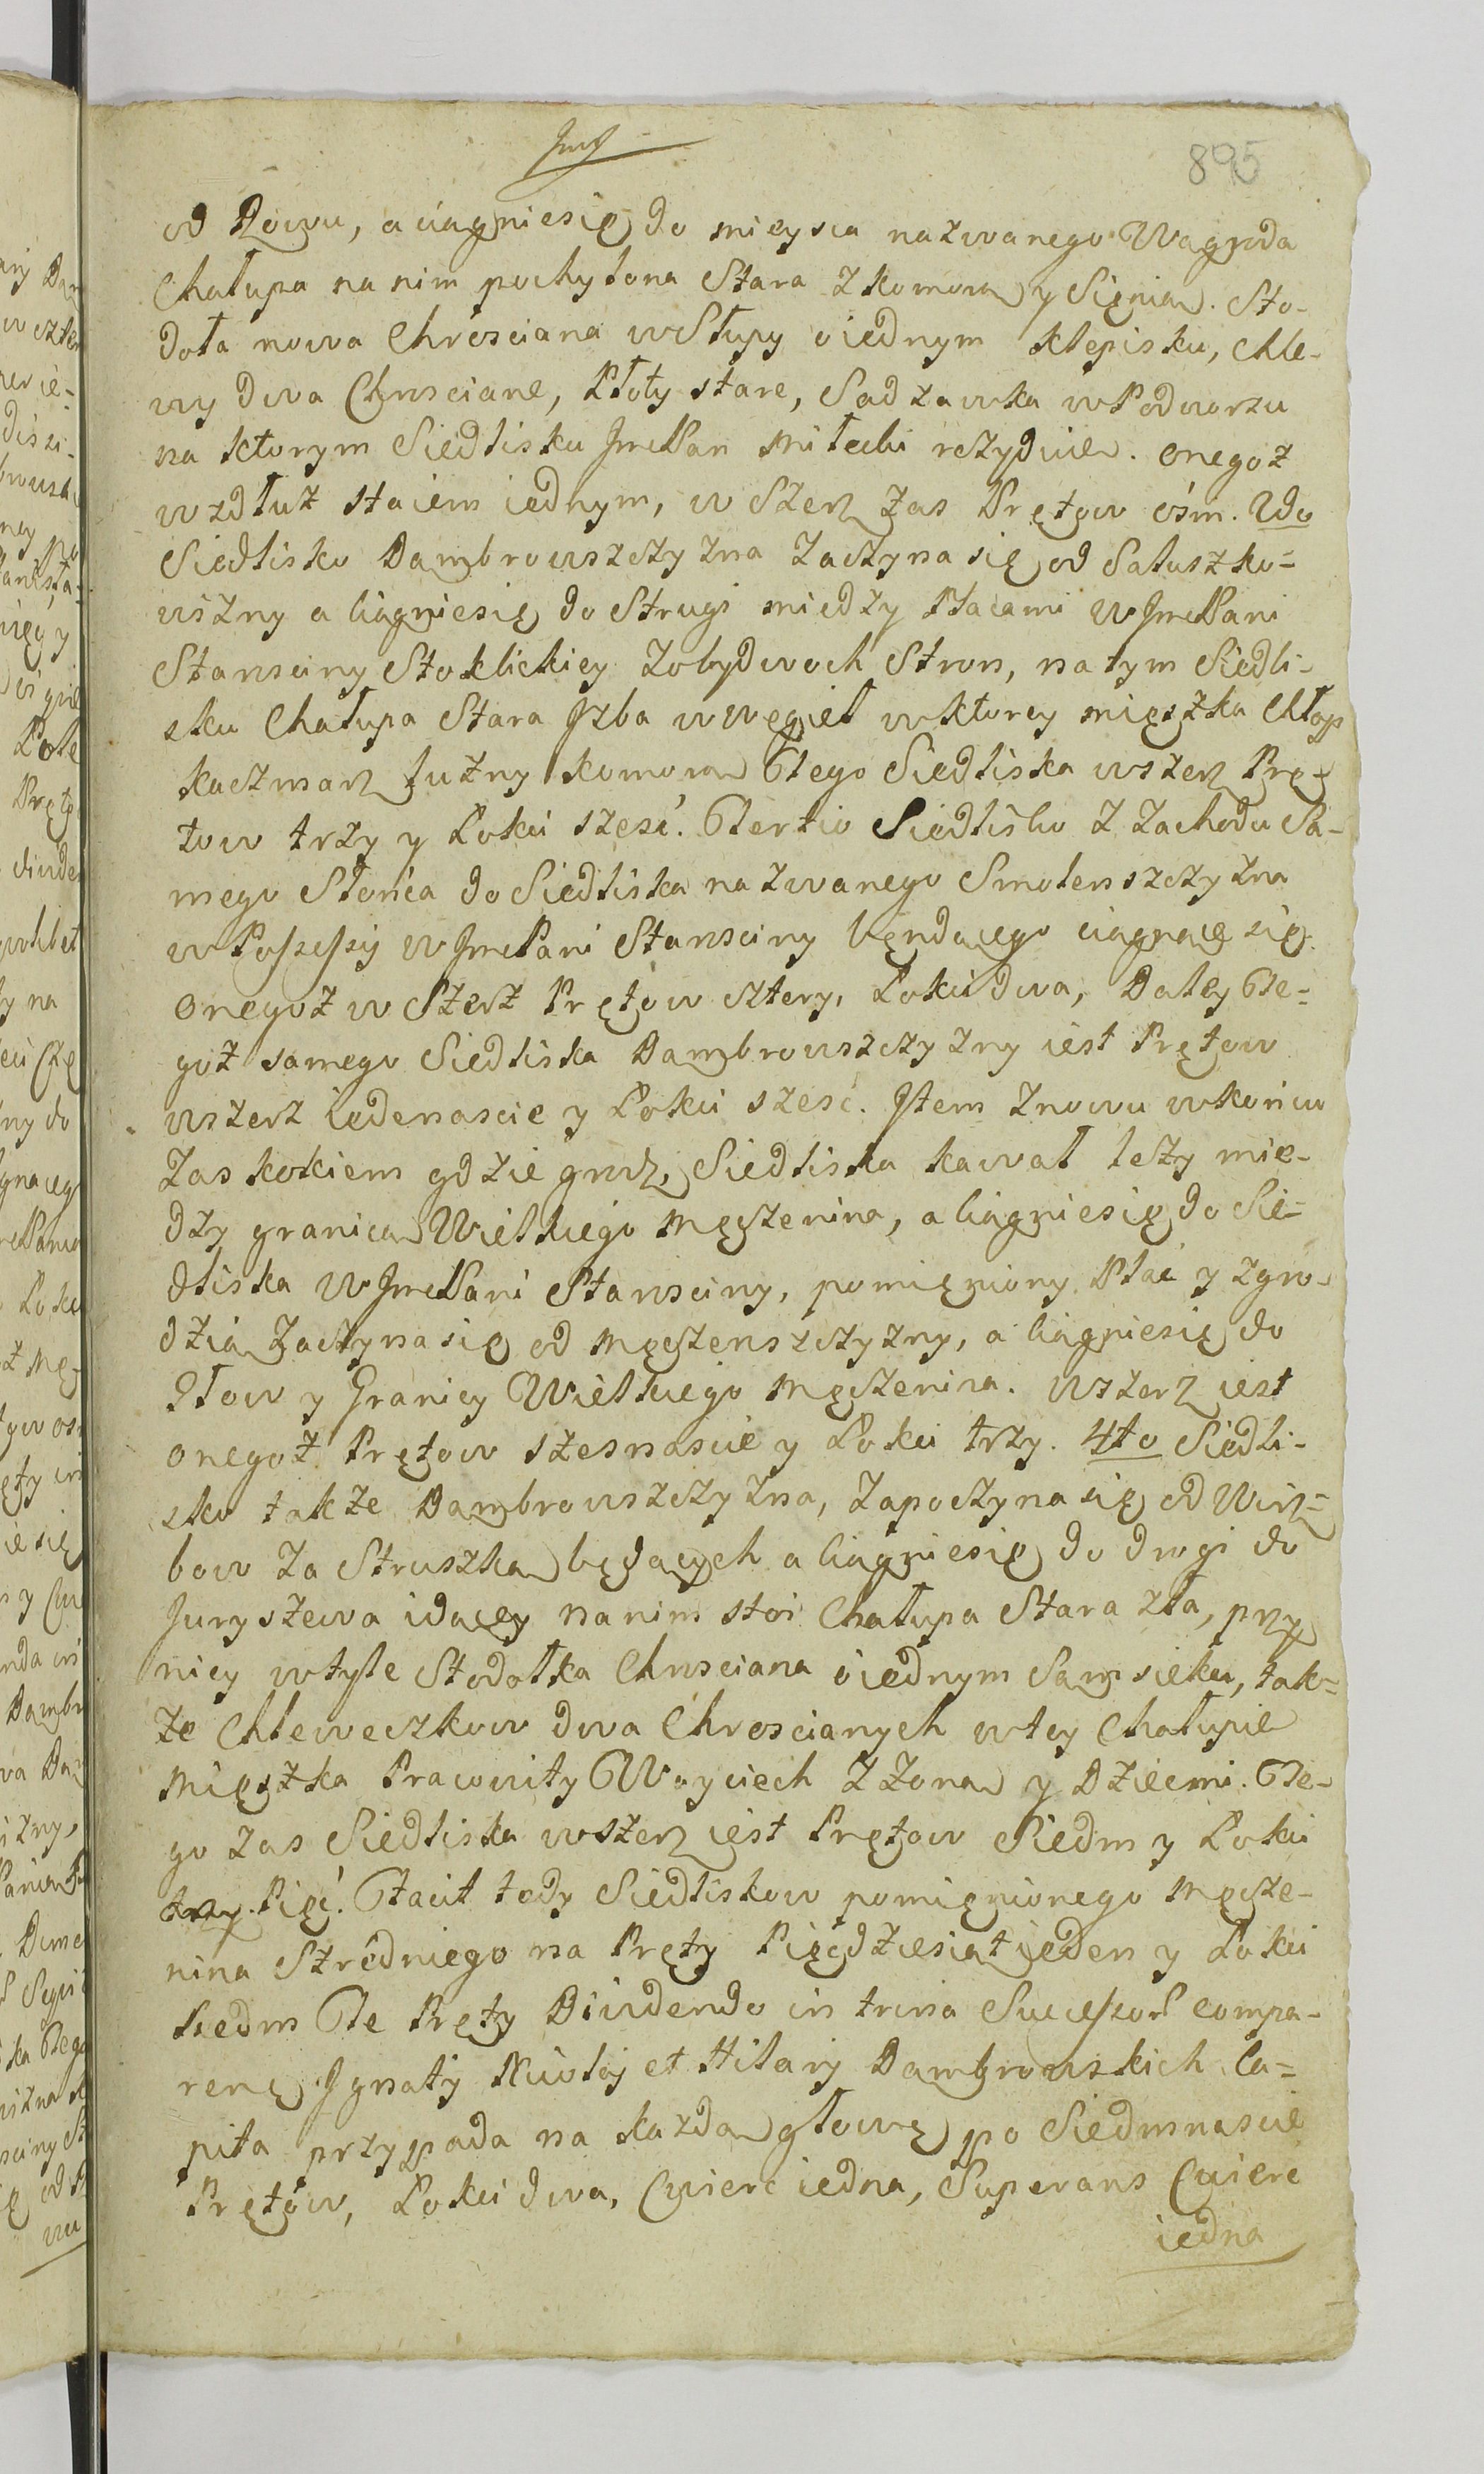 895
od Rowu, a ciągniesię do mieysca nazwanego Wagroda
Chałupa na nim pochylona Stara z komorą y Sięnią. Sto-
doła nowa Chrosciana w Słupy o iednym klepisku, Chle-
wy dwa Chrosciane, Płoty stare, Sadzawka w Podworzu
na ktorym Siedlisku JmcPan Milecki rezyduie. onegoz
wzdłuz staiem iednym, w Szerz zas Prętow ośm. 2do
Siedlisko Dambrowszczyzna zaczyna się od Sałuszko-
wizny a ciągniesię do Strugi między Placami WJmcPani
Starosciny Stoklickiey z obydwoch Stron, na tym Siedli-
sku Chałupa Stara Jzba w węgieł w ktorey mięszka Chłop
kaczmarz luzny komorą Tego Siedliska wszerz Prę-
tow trzy y Łokci sześć. Tertio Siedlisko z Zachodu Sa-
mego Słońca do Siedliska nazwanego Smolenszczyzna
w Possessij WJmcPani Starosciny będącego ciągnącę się.
onegoz w Szerz Prętów cztery, Łokci dwa, Daley Te-
goz samego Siedliska Dambrowszczyzny iest Prętow
wszerz iedenascie y Łokci sześć. Jtem znowu wkońcu
Zaskokiem gdzie grodz, Siedliska kawał lezy mie-
dzy granicą Wielkiego Męczenina, a ciągniesię do Sie-
dliska WJmcPani Starosciny, pomięniony Plac y zgro-
dzią zaczyna się od Męczenszczyzny, a ciągniesię do
Płow y Granicy Wielkiego Męczenina. wszerz iest
onegoz Prętow szesnascie y Łokci trzy. 4to Siedli-
sko także Dambrowszczyzna, zapoczyna się od Wirz-
bow za Struszką będących a ciągniesię do drogi do
Juryszewa idącey na nim stoi Chałupa Stara zła, przy
niey wtyle Stodołka Chrosciana o iednym Samsieku, tak-
ze Chleweczkow dwa Chroscianych w tey Chałupie
mięszka Pracowity Woyciech z Zoną y Dziecmi. Te-
go zas Siedliska wszerz iest Prętow Siedm y Łokci
trzy. Pięć. Facit tedy Siedliskow pomięnionego Męcze-
nina Szredniego na Pręty Pięćdziesiąt ieden y Łokci
siedm Te Pręty Dividendo in trina Successor compa-
rent Jgnatij Nicolaj et Hilarij Dambrowskich Ca-
pita przypada na kazdą głowę po Siedmnascie
Prętów, Łokci dwa, Cwierc iedna, Superans Cwierc
iedna